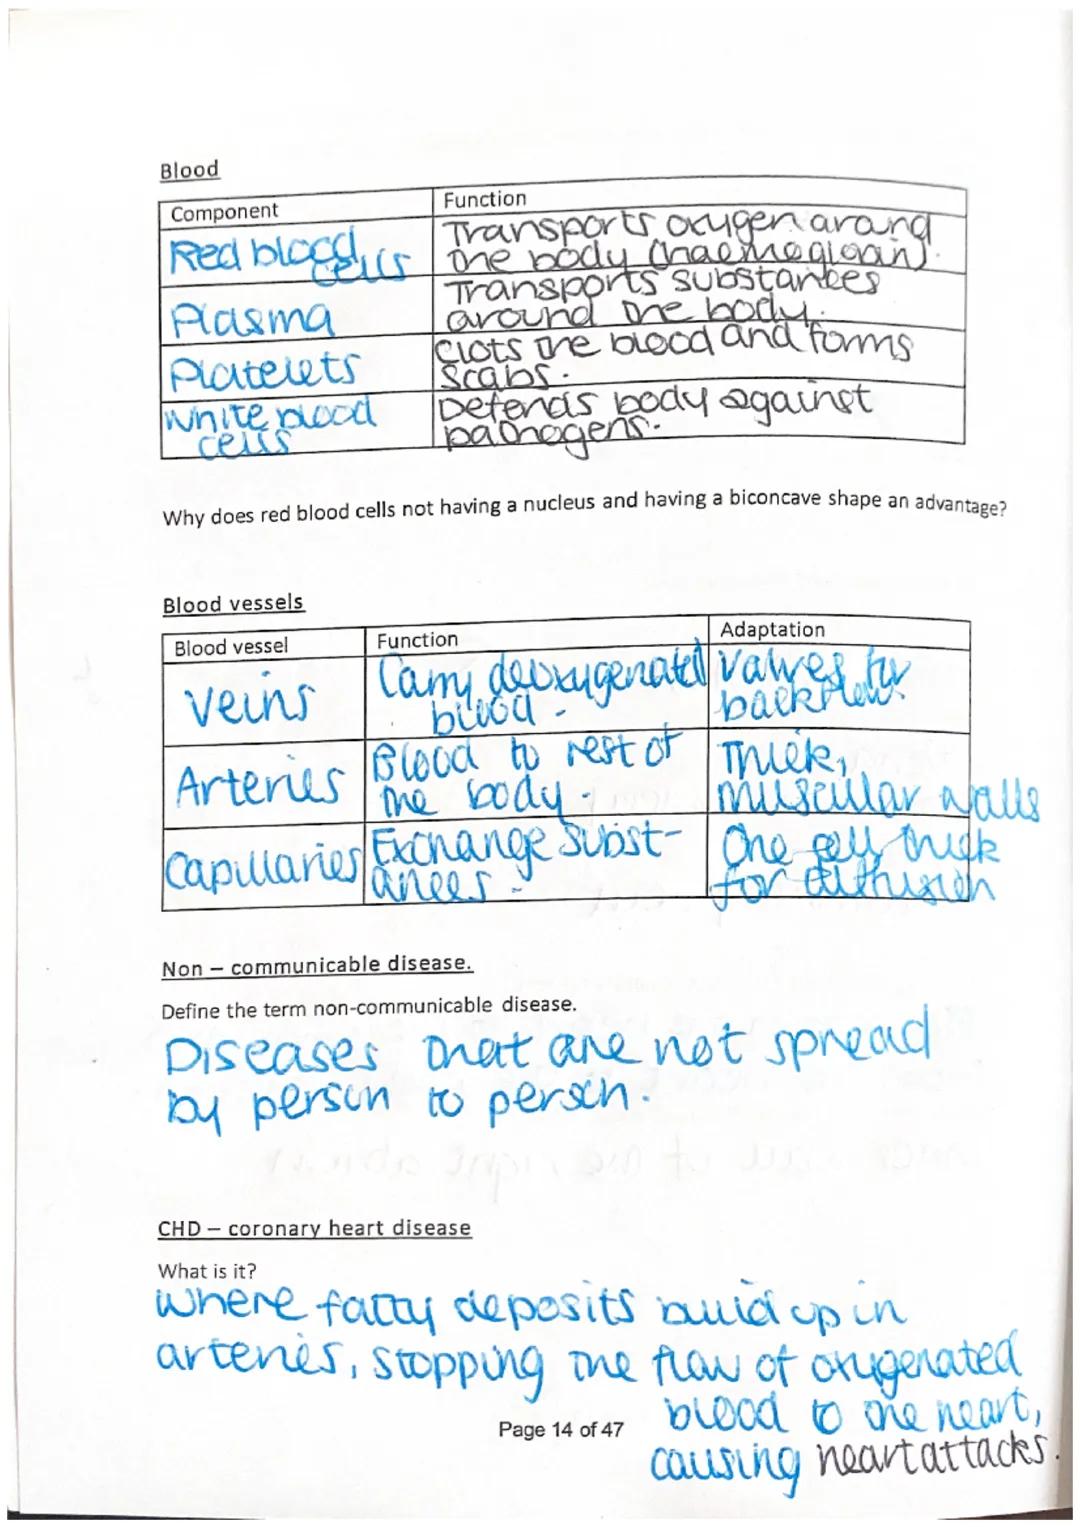 Blood
Component
Function
Red blood cells
Transports oxygen around
the body (haemegloain).
Plasma
Transports substances
around the body.
Platelets
Clots the blood and forms
scabs.
White blood
cells
Defends body against
pathogens.
Why does red blood cells not having a nucleus and having a biconcave shape an advantage?
Blood vessels
Blood vessel
Function
Adaptation
Veins
Carry deoxygenated
blood.
valves for
backflow.
Arteries
Blood to rest of
the body.
Thick,
muscular walls
Capillaries
Exchange subst-
ances.
One cell thick
for diffusion
Non – communicable disease.
Define the term non-communicable disease.
Diseases that are not spread
by person to person.
CHD – coronary heart disease
What is it?
Where fatty deposits build up in
arteries, stopping the flow of oxygenated
blood to the heart,
Page 14 of 47
causing heart attacks.